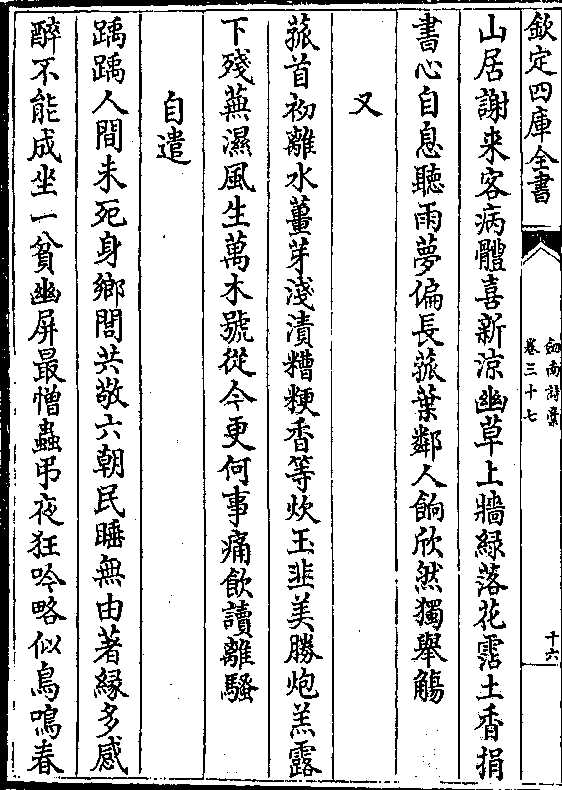 欽定四庫全書
劍南詩藁
卷三十七
十六
山居謝来客病體喜新涼幽草上牆緑落花霑土香捐
書心自息聽雨夢偏長菰葉鄰人餉欣然獨舉觴
又
菰首初離水薑芽淺漬糟粳香等炊玉韭美勝炮羔露
下殘蕪濕風生萬木號從今更何事痛飲讀離騷
自遣
踽踽人間未死身鄉閭共敬六朝民睡無由著緣多感
醉不能成坐一貧幽屏最憎蟲弔夜狂吟略似鳥鳴春